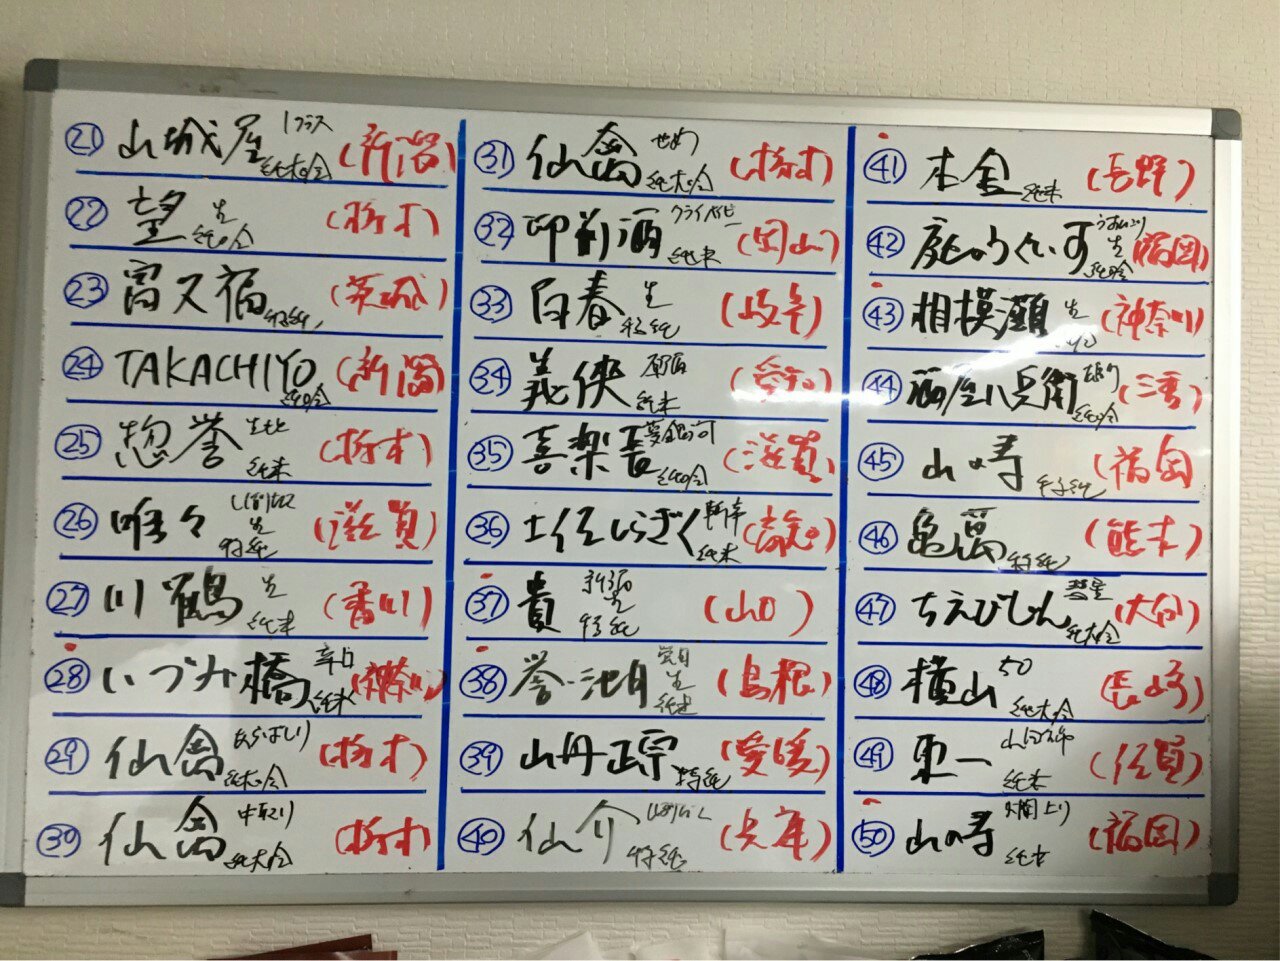 ㉑ 山城屋 1クラス 純大吟 (新潟)
㉒ 望 生 純吟 (栃木)
㉓ 富久福 特純 (茨城)
㉔ TAKACHIYO 純吟 (新潟)
㉕ 惣誉 生もと 純米 (栃木)
㉖ 唯々 生 特純 (滋賀)
㉗ 川鶴 生 純米 (香川)
㉘ いづみ橋 辛口 純米 (神奈川)
㉙ 仙禽 あらばしり 純大吟 (栃木)
㉚ 仙禽 中取り 純大吟 (栃木)
㉛ 仙禽 せめ 純大吟 (栃木)
㉜ 御前酒 純米 (岡山)
㉝ 百春 生 特純 (岐阜)
㉞ 義侠 純米 (愛知)
㉟ 喜楽長 純吟 (滋賀)
㊱ 土佐しらぎく 斬辛 純米 (高知)
㊲ 貴 生 特純 (山口)
㊳ 誉池月 生 純米 (島根)
㊴ 山丹正宗 特純 (愛媛)
㊵ 仙介 特純 (兵庫)
㊶ 本金 純米 (長野)
㊷ 庭のうぐいす うすにごり 生 純吟 (福岡)
㊸ 相模灘 生 (神奈川)
㊹ 酒屋八兵衛 純吟 (三重)
㊺ 山の寿 特純 (福岡
㊻ 亀萬 特純 (熊本)
㊼ ちえびじん 彗星 純大吟 (大分)
㊽ 横山 50 純大吟 (長崎)
㊾ 東一 山田錦 純米 (佐賀)
㊿ 山の寿 純米 (福岡)